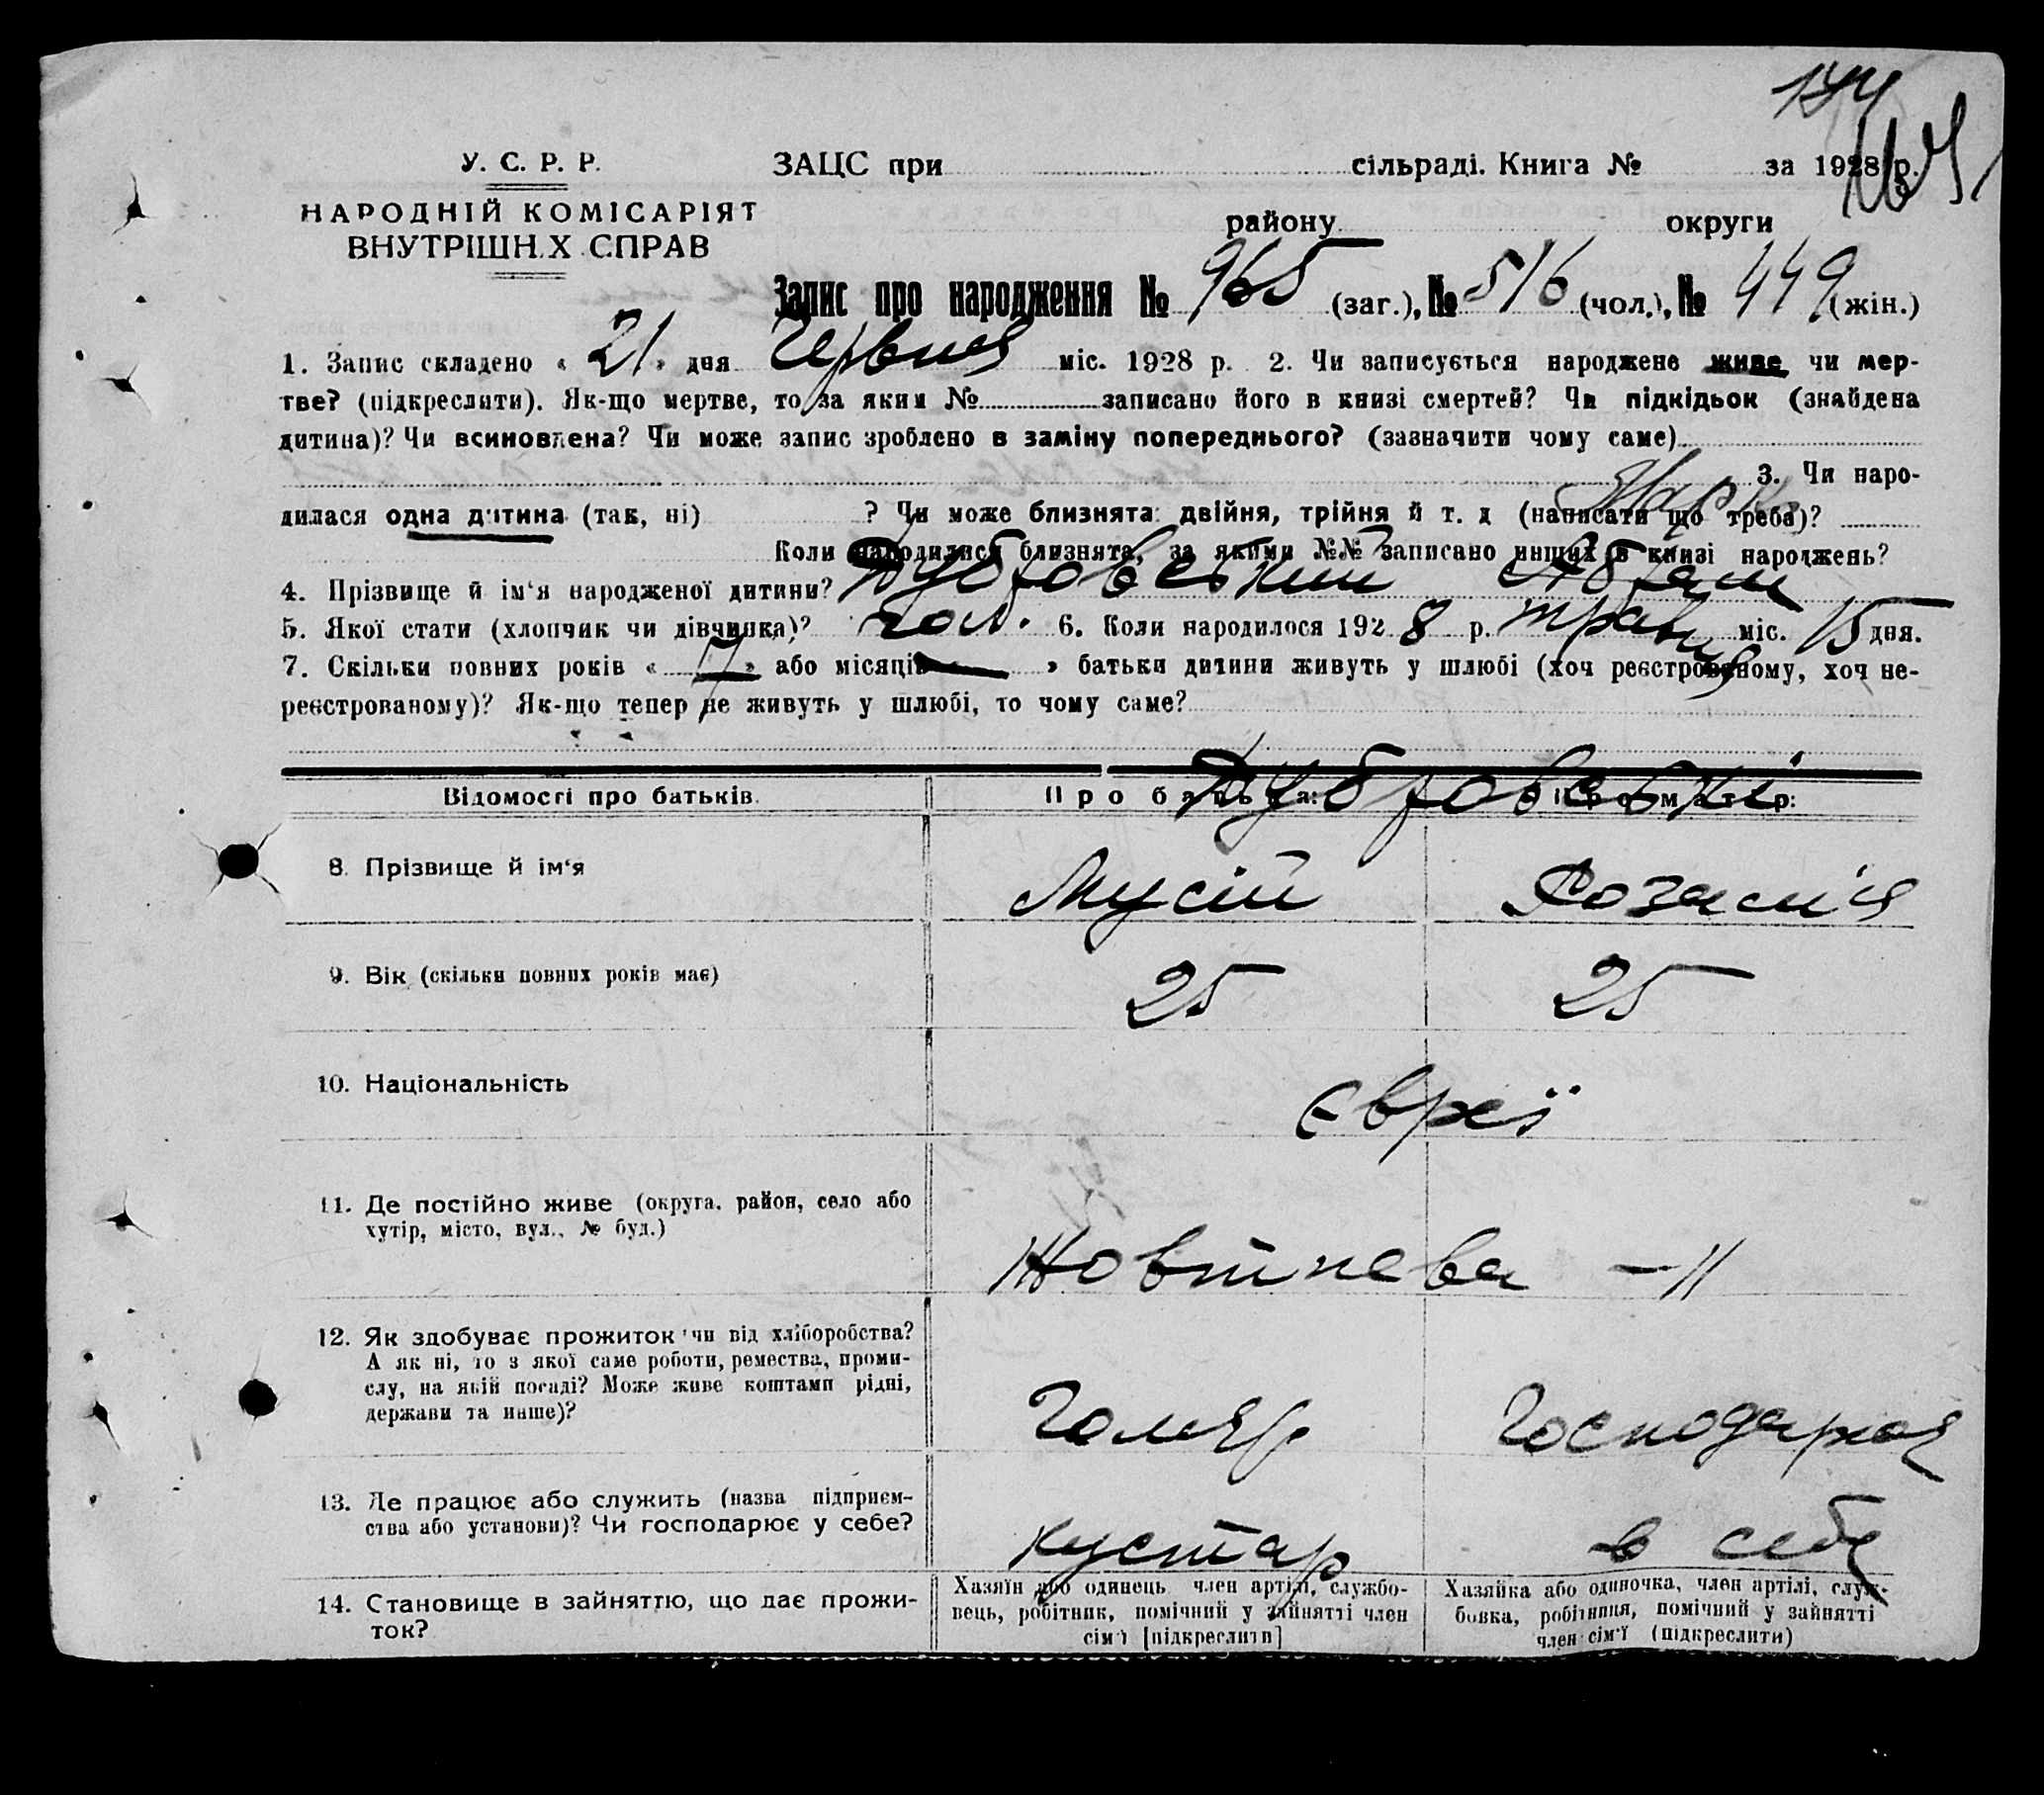 144
164
У. С. Р. Р. ЗАЦС при сільраді. Книга № за 1928 р.
НАРОДНІЙ КОМІСАРІЯТ району округи
ВНУТРІШН.Х СПРАВ
Запис про народження № 965 (заг.), № 516 (чол.), № 449 (жін.)
1. Запис складено « 21 » дня Червня міс. 1928 р. 2. Чи записується народжене живе чи мер-
тве? (підкреслити). Як-що мертве, то за яким № записано його в книзі смертей? Чи підкідьок (знайдена
дитина)? Чи всиновлена? Чи може запис зроблено в заміну попереднього? (зазначити чому саме)
3. Чи наро-
дилася одна дитина (так, ні) ? Чи може близнята: двійня, трійня й т. д (написати що треба)?
Коли народилися близнята, за якими №№ записано инших в книзі народжень?
4. Прізвище й ім‘я народженої дитини? Дубровський Абрам
5. Якої стати (хлопчик чи дівчинка)? чол. 6. Коли народилося 192 8 р. травня міс. 15 дня.
7. Скільки повних років « 7 » або місяців « — » батьки дитини живуть у шлюбі (хоч реєстрованому, хоч не-
реєстрованому)? Як-що тепер не живуть у шлюбі, то чому саме?
Дубровські
Відомості про батьків. Про батька: Про матір:
8. Прізвище й ім‘я Мусій Розалія
9. Вік (скільки повних років має) 25 25
10. Національність Євреї
11. Де постійно живе (округа, район, село або
хутір, місто, вул., № буд.) Жовтнева – 11
12. Як здобуває прожиток чи від хліборобства?
А як ні, то з якої саме роботи, ремества, проми-
слу, на якій посаді? Може живе коштами рідні,
держави та инше)? Голяр Господарка
13. Де працює або служить (назва підприєм-
ства або установи)? Чи господарює у себе? кустар в себе
14. Становище в зайняттю, що дає прожи-
ток?
Хазяїн або одинець, член артілі, службо-
вець, робітник, помічний у зайнятті член
сім‘ї [підкреслити]
Хазяйка або одиночка, член артілі, служ-
бовка, робітниця, помічний у зайнятті
член сім‘ї (підкреслити)